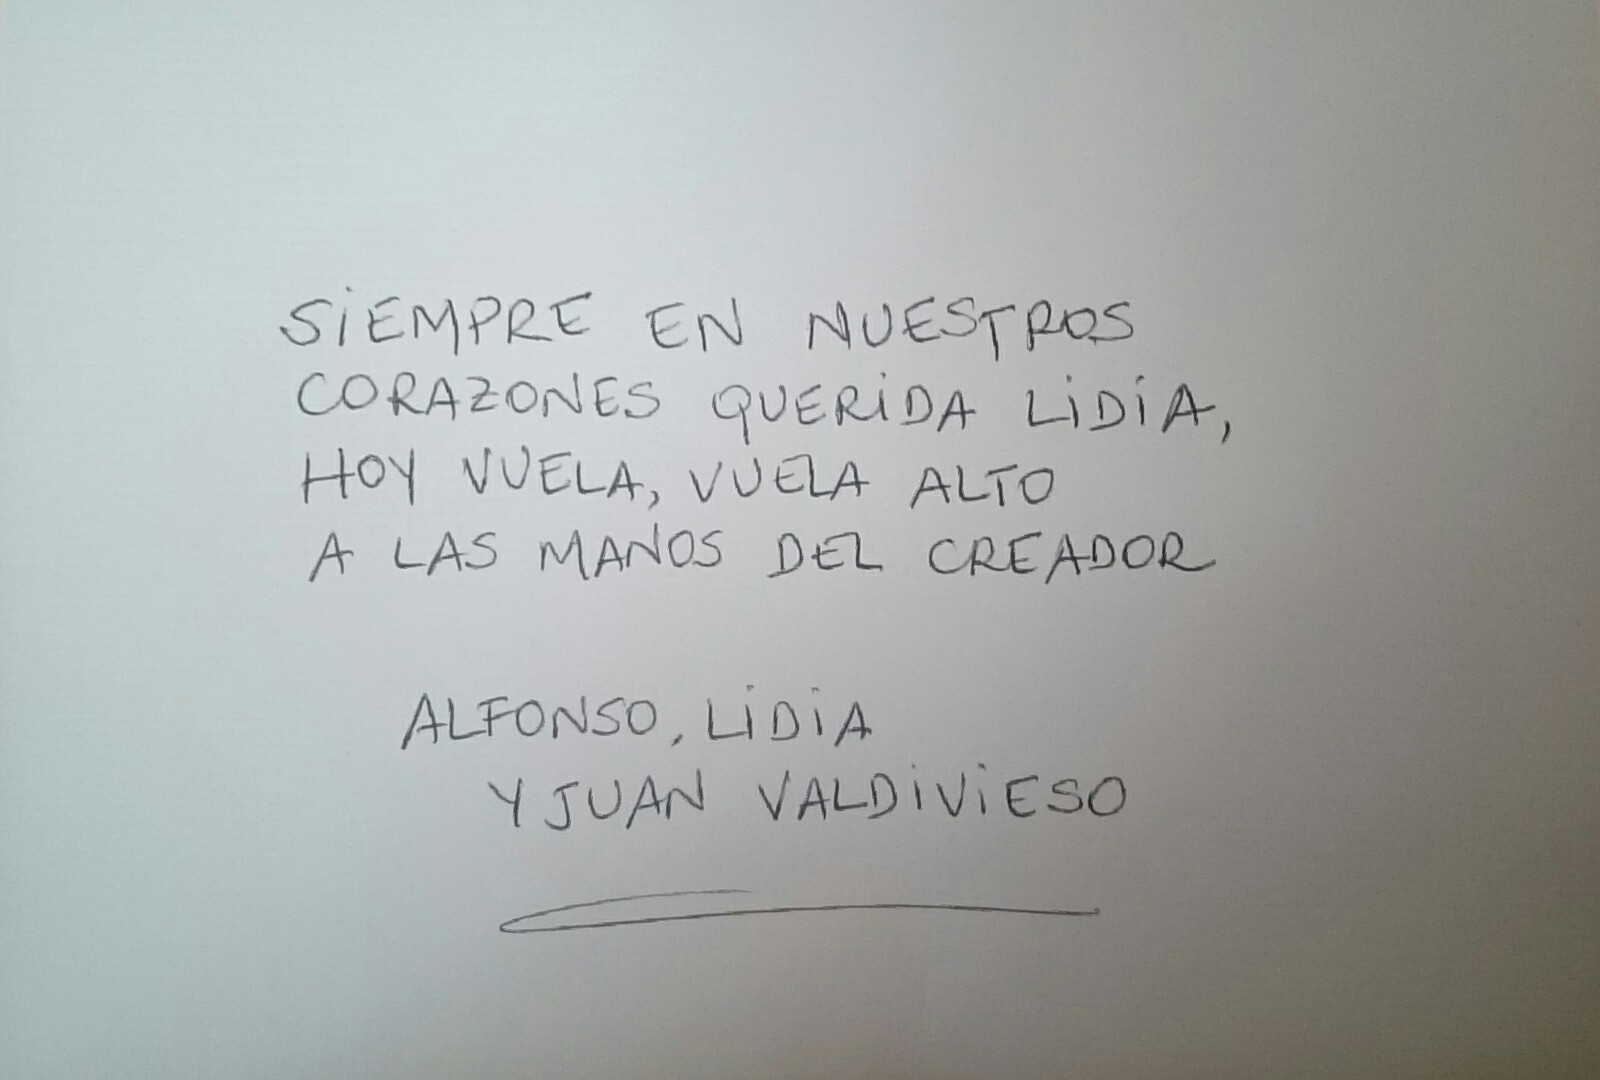 SIEMPRE EN NUESTROS
CORAZONES QUERIDA LIDIA,
HOY VUELA, VUELA ALTO
A LAS MANOS DEL CREADOR
ALFONSO, LIDIA
Y JUAN VALDIVIESO